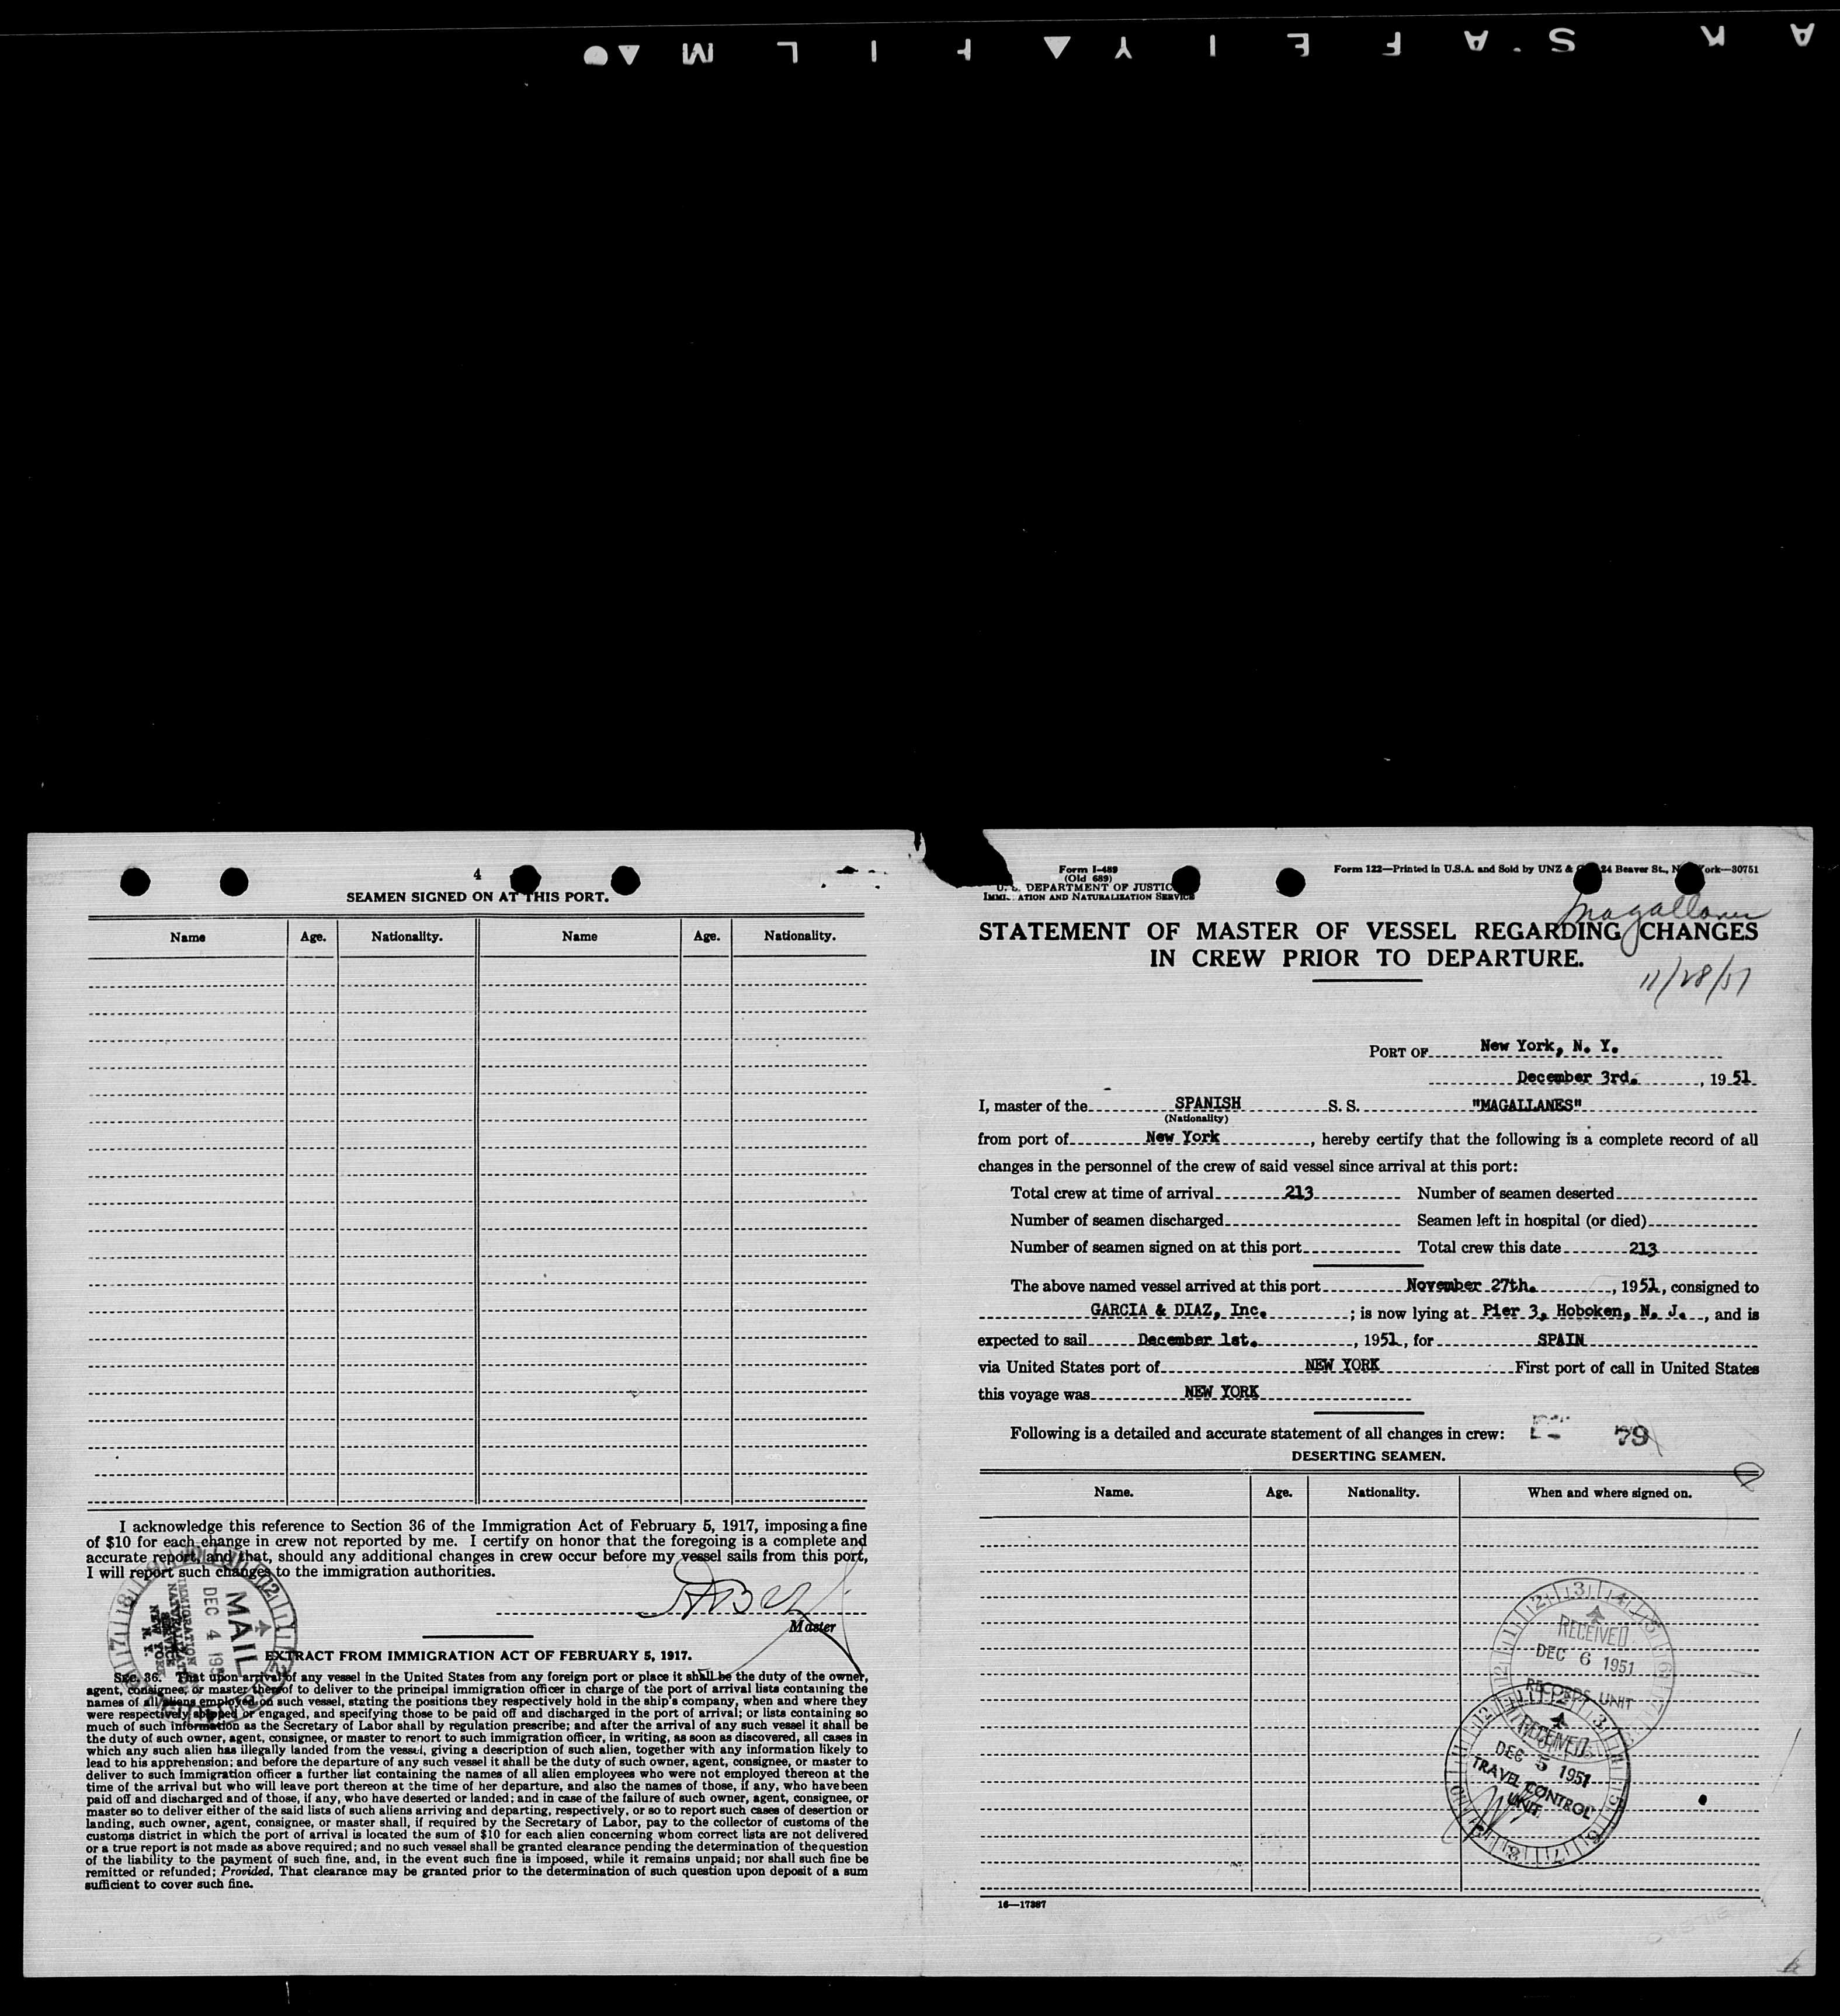 4
SEAMEN SIGNED ON AT THIS PORT.
Name Age. Nationality. Name Age. Nationality.
I acknowledge this reference to Section 36 of the Immigration Act of February 5, 1917, imposing a fine
of $10 for each change in crew not reported by me. I certify on honor that the foregoing is a complete and
accurate report, and that, should any additional changes in crew occur before my vessel sails from this port,
I will report such changes to the immigration authorities.
Master
MAIL
DEC 4 195
IMMIGRATION
NATURALIZATION
SERVICE
NEW YORK
N. Y.
EXTRACT FROM IMMIGRATION ACT OF FEBRUARY 5, 1917.
Sec. 36. That upon arrival of any vessel in the United States from any foreign port or place it shall be the duty of the owner,
agent, consignee, or master thereof to deliver to the principal immigration officer in charge of the port of arrival lists containing the
names of all aliens employed on such vessel, stating the positions they respectively hold in the ship's company, when and where they
were respectively shipped or engaged, and specifying those to be paid off and discharged in the port of arrival; or lists containing so
much of such information as the Secretary of Labor shall by regulation prescribe; and after the arrival of any such vessel it shall be
the duty of such owner, agent, consignee, or master to report to such immigration officer, in writing, as soon as discovered, all cases in
which any such alien has illegally landed from the vessel, giving a description of such alien, together with any information likely to
lead to his apprehension; and before the departure of any such vessel it shall be the duty of such owner, agent, consignee, or master to
deliver to such immigration officer a further list containing the names of all alien employees who were not employed thereon at the
time of the arrival but who will leave port thereon at the time of her departure, and also the names of those, if any, who have been
paid off and discharged and of those, if any, who have deserted or landed; and in case of the failure of such owner, agent, consignee, or
master so to deliver either of the said lists of such aliens arriving and departing, respectively, or so to report such cases of desertion or
landing, such owner, agent, consignee, or master shall, if required by the Secretary of Labor, pay to the collector of customs of the
customs district in which the port of arrival is located the sum of $10 for each alien concerning whom correct lists are not delivered
or a true report is not made as above required; and no such vessel shall be granted clearance pending the determination of the question
of the liability to the payment of such fine, and, in the event such fine is imposed, while it remains unpaid; nor shall such fine be
remitted or refunded; Provided, That clearance may be granted prior to the determination of such question upon deposit of a sum
sufficient to cover such fine.
Form I-489
(Old 689)
U. S. DEPARTMENT OF JUSTIC
IMMI ATION AND NATURALIZATION SERVICE
Form 122—Printed in U.S.A. and Sold by UNZ & 24 Beaver St., N ork—30751
Magallanes
STATEMENT OF MASTER OF VESSEL REGARDING CHANGES
IN CREW PRIOR TO DEPARTURE.
11/28/51
PORT OF New York, N. Y.
December 3rd. , 19 51
I, master of the SPANISH S. S. "MAGALLANES"
(Nationality)
from port of New York , hereby certify that the following is a complete record of all
changes in the personnel of the crew of said vessel since arrival at this port:
Total crew at time of arrival 213 Number of seamen deserted
Number of seamen discharged Seamen left in hospital (or died)
Number of seamen signed on at this port Total crew this date 213
The above named vessel arrived at this port November 27th. , 1951, consigned to
GARCIA & DIAZ, Inc. ; is now lying at Pier 3, Hoboken, N. J. , and is
expected to sail December 1st. , 1951, for SPAIN
via United States port of NEW YORK First port of call in United States
this voyage was NEW YORK
Following is a detailed and accurate statement of all changes in crew: 79
DESERTING SEAMEN.
Name. Age. Nationality. When and where signed on.
RECEIVED
DEC 6 1951
RECORDS UNIT
RECEIVED
DEC 5 1951
TRAVEL CONTROL
UNIT
16—17387